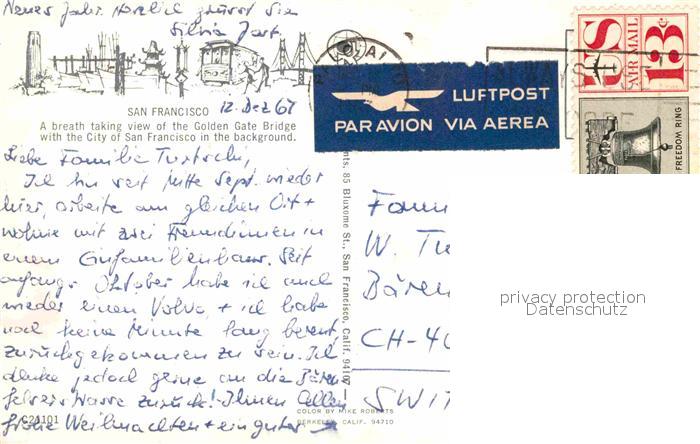 Neues Jahr. Herzlich grüsst Sie
Silvia Jost
SAN FRANCISCO 12. Dez 67
A breath taking view of the Golden Gate Bridge
with the City of San Francisco in the background.
Liebe Familie
Ich bin seit Mitte Sept. wieder
hier, arbeite am gleichen Ort +
wohne mit zwei Freundinnen in
einem Einfamilienhaus. Seit
anfangs Oktober habe ich auch
wieder einen Volvo, + ich habe
noch keine Minute lang bereut,
zurückgekommen zu sein. Ich
denke jedoch gerne an die Bären
felserstrasse zurück! Ihnen allen
frohe Weihnachten + ein gutes
C24101
COLOR BY MIKE ROBERTS
BERKELEY, CALIF. 94710
nts, 85 Bluxome St., San Francisco, Calif. 94107
LUFTPOST
PAR AVION VIA AEREA
US
AIR MAIL
13c
FREEDOM RING
Fam
W. Tu
Bären
CH-40
SWIT
privacy protection
Datenschutz